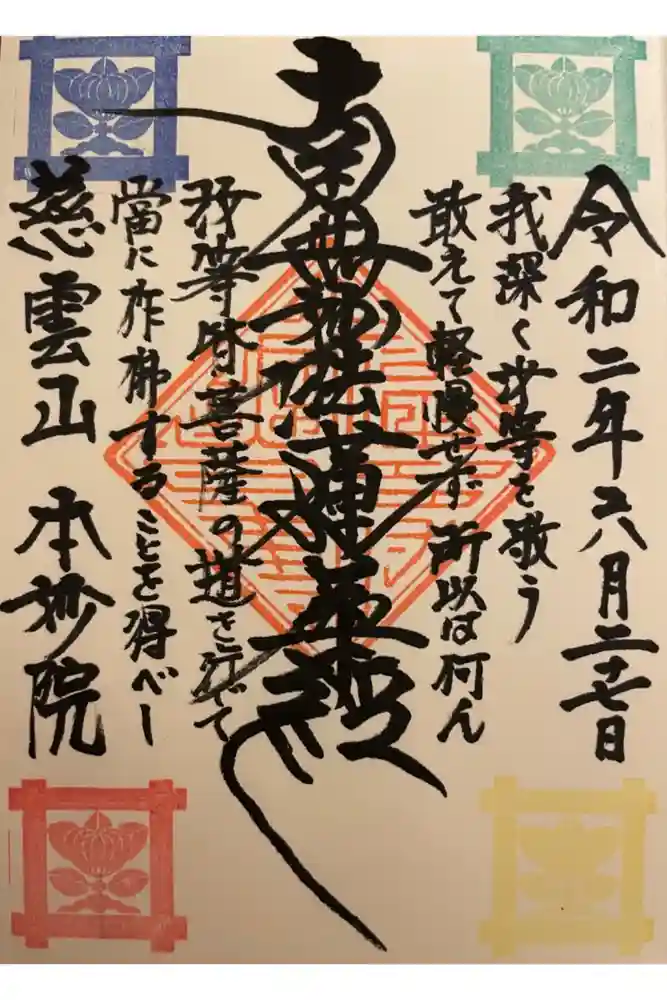 令和二年六月二十七日
我深く汝等を敬う
敢えて軽慢せず 所以は何ん
南無妙法蓮華經
汝等皆菩薩の道を行じて
當に作佛することを得べし
慈雲山 本妙院